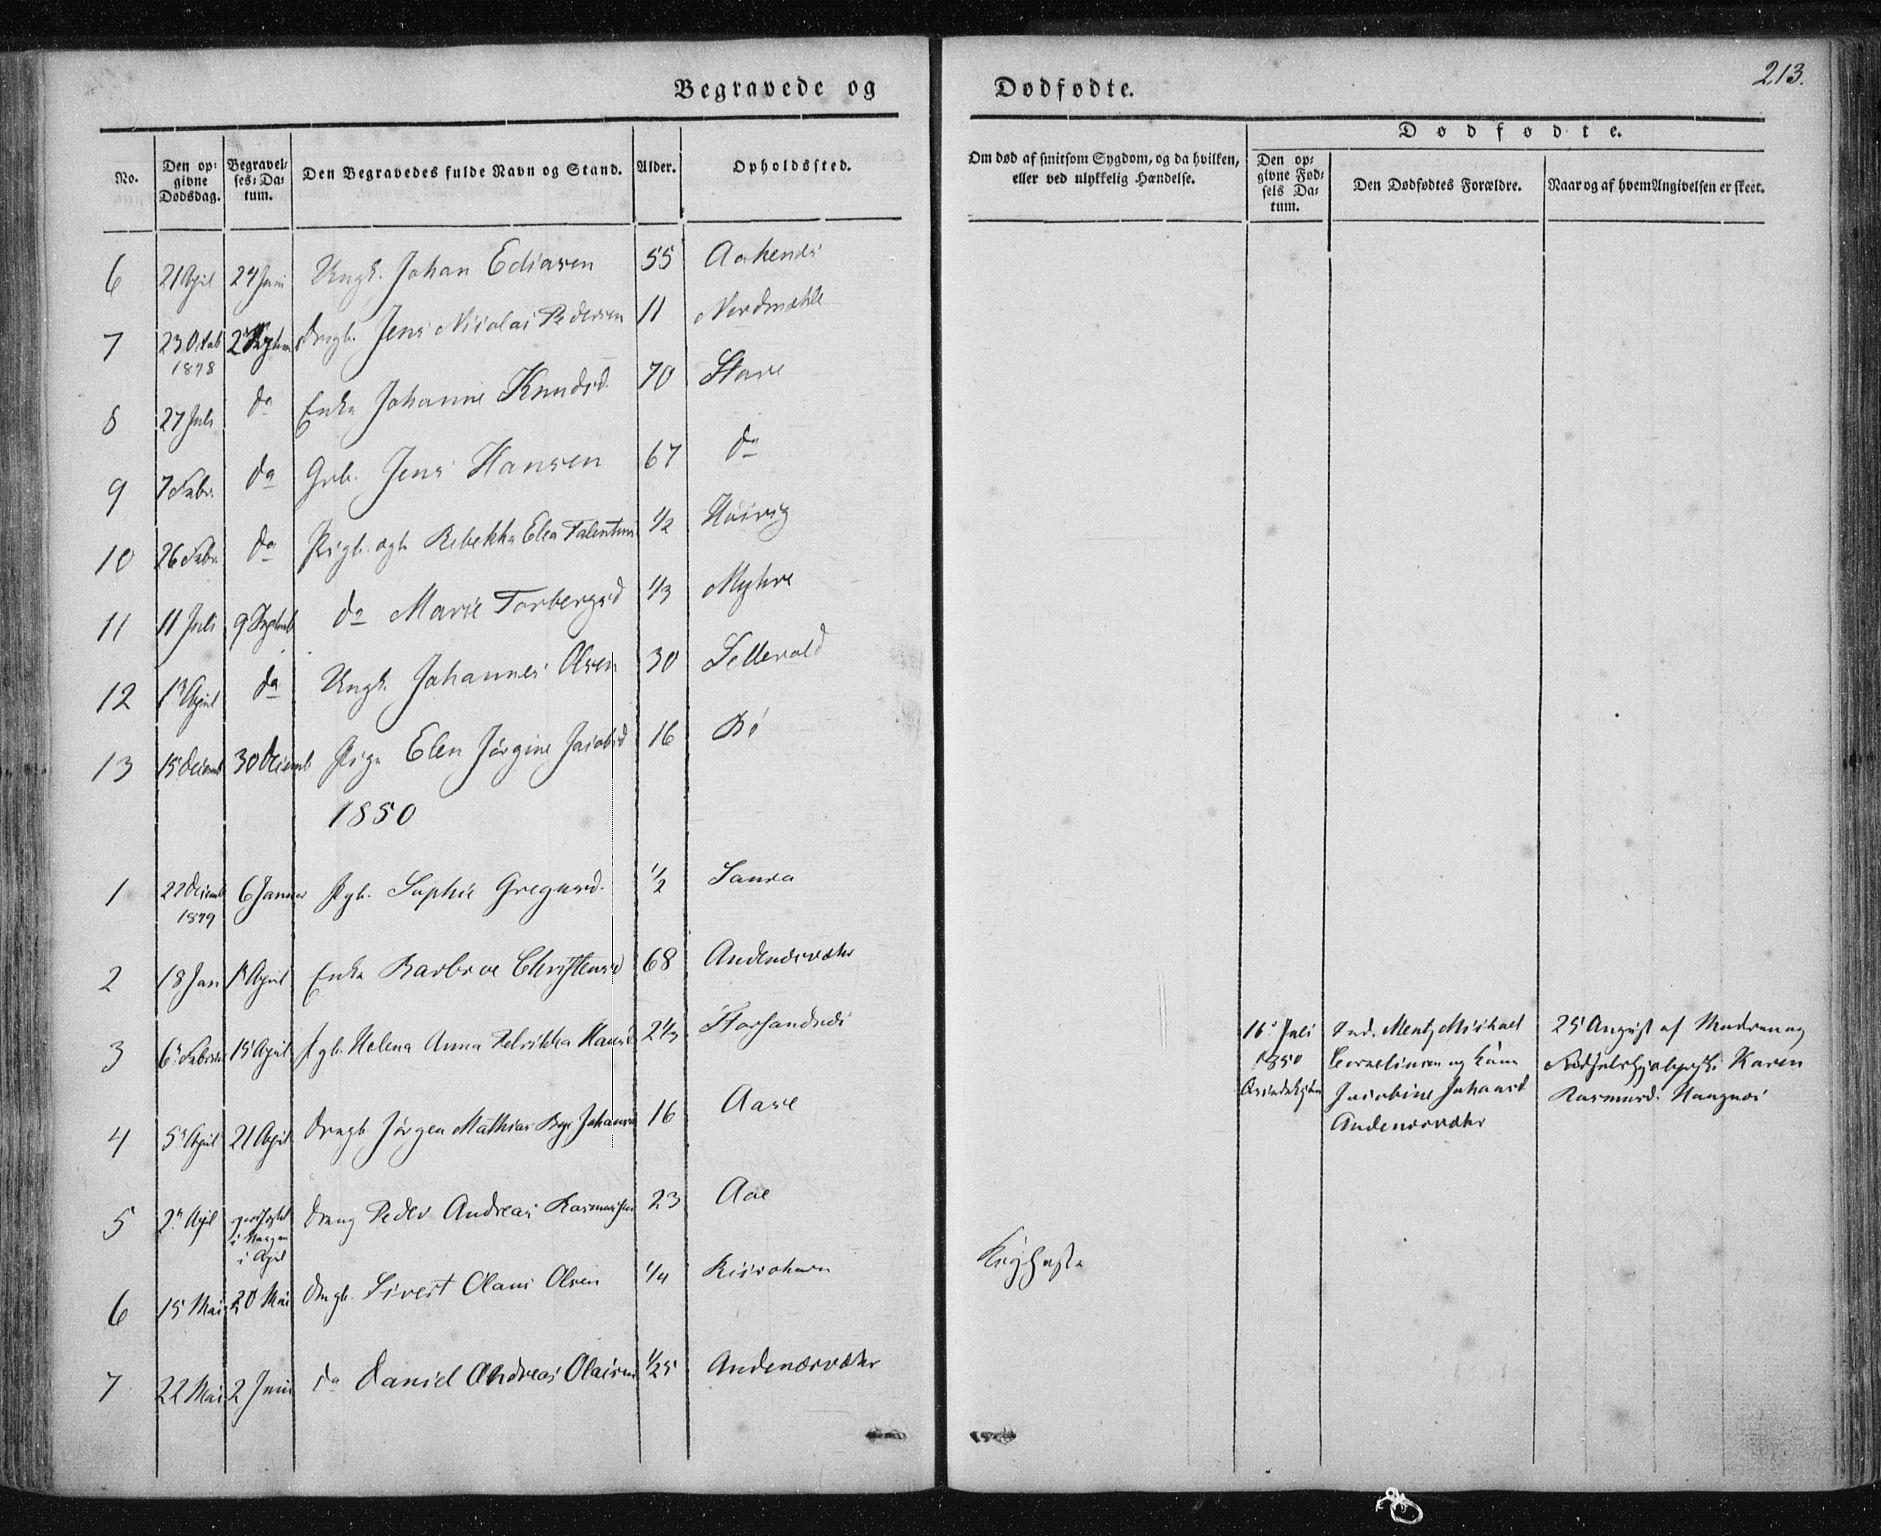 Begravede og
Dødfødte.
213.
No.
Den opgivne Dødsdag.
Begravelses-Datum.
Den Begravedes fulde Navn og Stand.
Alder.
Opholdssted.
Om død af smitsom Sygdom, og da hvilken, eller ved ulykkelig Hændelse.
Dødfødte.
Den opgivne Fødsels Datum.
Den Dødfødtes Forældre.
Naar og af hvem Angivelsen er skeet.
6 21 April 24 Juni Ungk. Johan Ediasen 55 Aakenæs
7 23 Octob 1848 Drngb. Jens Nicolai Pedersen 11 Nordmæhle
8 27 Juli do Enke Johanne Knudsd. 70 Stave
9 7 Febr. do Grb. Jens Hansen 67 do
10 26 Febr. do Pigeb. Rebekka Elea 1/2 Høivig
11 11 Juli 9 Septemb do Marie Torbergsd 1/3 Myhre
12 April do Ungk. Johannes Olsen 30 Sellevold
13 15 Decemb 30 Decemb Pige Elen Jørgine Jacobsd 16 Bø
1850
1 22 Decemb 1849 6 Januar Pgb. Sophie Gregusd. 1/2 Saura
2 18 Jan April Enke Barbroe Christensd 68 Andenæsvæhr
3 6 Februar 15 April Pgb. Helena Anna Hansd 2 1/3
4 5 April 21 April Drngb Jørgen Mathias Johansen 16 Aase
5 2 April i April Dreng Peder Andreas Rasmussen 23 Aae
6 15 Mai 20 Mai Drngb. Sivert Olaus Olsen 1/4 Kighoste
7 22 Mai 2 Juni do Daniel Andreas Olaisen 1/25 Andenæsvæhr
16 Juli 1850
Ind. Mentz Michael
Corneliusen og Kone
Jacobine Johansd
Andenæsvæhr
25 August af Madmen og
Karen
Rasmusd. Haugnæs